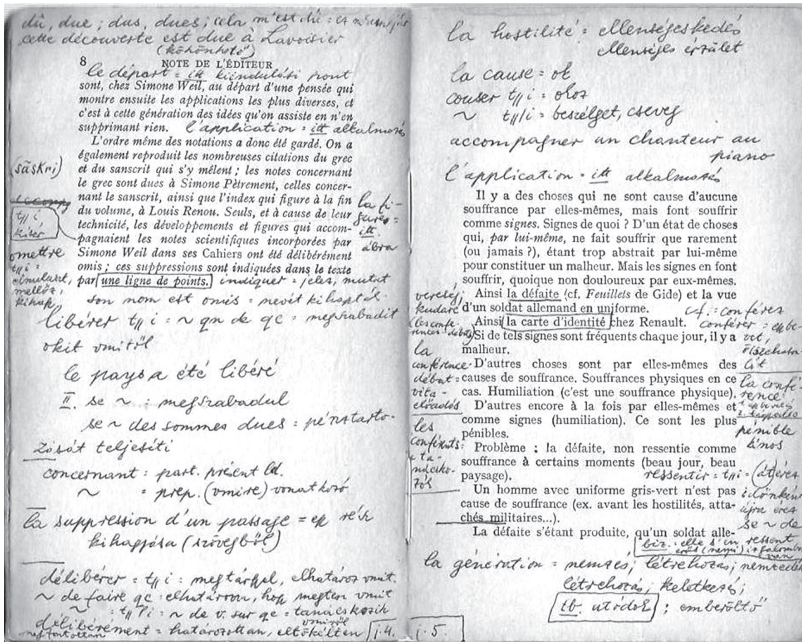 dû, due ; dus, dues ; cela m'est dû :
cette découverte est due à Lavoisier
(köhönhető)
8 NOTE DE L'ÉDITEUR
le départ = itt kiindulási pont
sont, chez Simone Weil, au départ d'une pensée qui
montre ensuite les applications les plus diverses, et
c'est à cette génération des idées qu'on assiste en n'en
supprimant rien. l'application = itt alkalmazás
L'ordre même des notations a donc été gardé. On a
également reproduit les nombreuses citations du grec
et du sanscrit qui s'y mêlent ; les notes concernant
le grec sont dues à Simone Pètrement, celles concer-
nant le sanscrit, ainsi que l'index qui figure à la fin
du volume, à Louis Renou. Seuls, et à cause de leur
technicité, les développements et figures qui accom-
pagnaient les notes scientifiques incorporées par
Simone Weil dans ses Cahiers ont été délibérément
omis ; ces suppressions sont indiquées dans le texte
par une ligne de points. indiquer = jelez, mutat
(sãskri)
la fi-
gure =
itt
ábra
omettre
son nom est omis = nevét kihagyták
libérer t// i = ~ qn de qc = megszabadít
vkit vmitől
le pays a été libéré
II. se ~ : megszabadul
se ~ des sommes dues =
teljesíti
concernant = part. présent
~ = prép. (vmire) vonatkozó
la suppression d'un passage = egy rész
kihagyása (szövegből)
délibérer = t// i : megtárgyal, elhatároz vmit.
~ de faire qc = elhatározza, hogy megtesz vmit
~ = t// i = ~ de v. sur qc = tanácskozik
délibérément = határozottan, eltökélten i. 4.
la hostilité = ellenségeskedés
ellenséges érzület
la cause = ok
causer t// i = okoz
~ t// i = beszélget, cseveg
accompagner un chanteur au
piano
l'application = itt alkalmazás
Il y a des choses qui ne sont cause d'aucune
souffrance par elles-mêmes, mais font souffrir
comme signes. Signes de quoi ? D'un état de choses
qui, par lui-même, ne fait souffrir que rarement
(ou jamais ?), étant trop abstrait par lui-même
pour constituer un malheur. Mais les signes en font
souffrir, quoique non douloureux par eux-mêmes.
Ainsi la défaite (cf. Feuillets de Gide) et la vue
d'un soldat allemand en uniforme. cf. : conférez
Ainsi la carte d'identité chez Renault. conférer =
Si de tels signes sont fréquents chaque jour, il y a
malheur.
D'autres choses sont par elles-mêmes des
causes de souffrance. Souffrances physiques en ce
cas. Humiliation (c'est une souffrance physique).
D'autres encore à la fois par elles-mêmes et
comme signes (humiliation). Ce sont les plus
pénibles.
Problème : la défaite, non ressentie comme
souffrance à certains moments (beau jour, beau
paysage). ressentir = t// i =
Un homme avec uniforme gris-vert n'est pas
cause de souffrance (ex. avant les hostilités, atta-
chés militaires...).
La défaite s'était produite, qu'un soldat alle-
vereség
la
conférence
débat =
vita-
előadás
la confé-
rence
pénible
kínos
se ~ de
la génération = nemzés, létrehozás, nemzedék
létrehozás, keletkezés ;
tb. utódok ; emberöltő
i. 5.